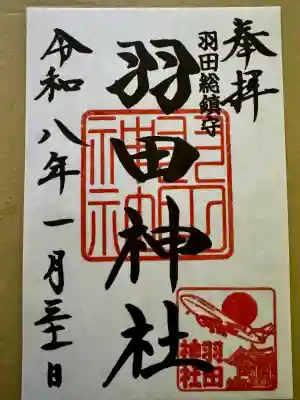 奉拝
羽田総鎮守
羽田神社
羽田神社
令和八年一月三十一日
羽田
神社